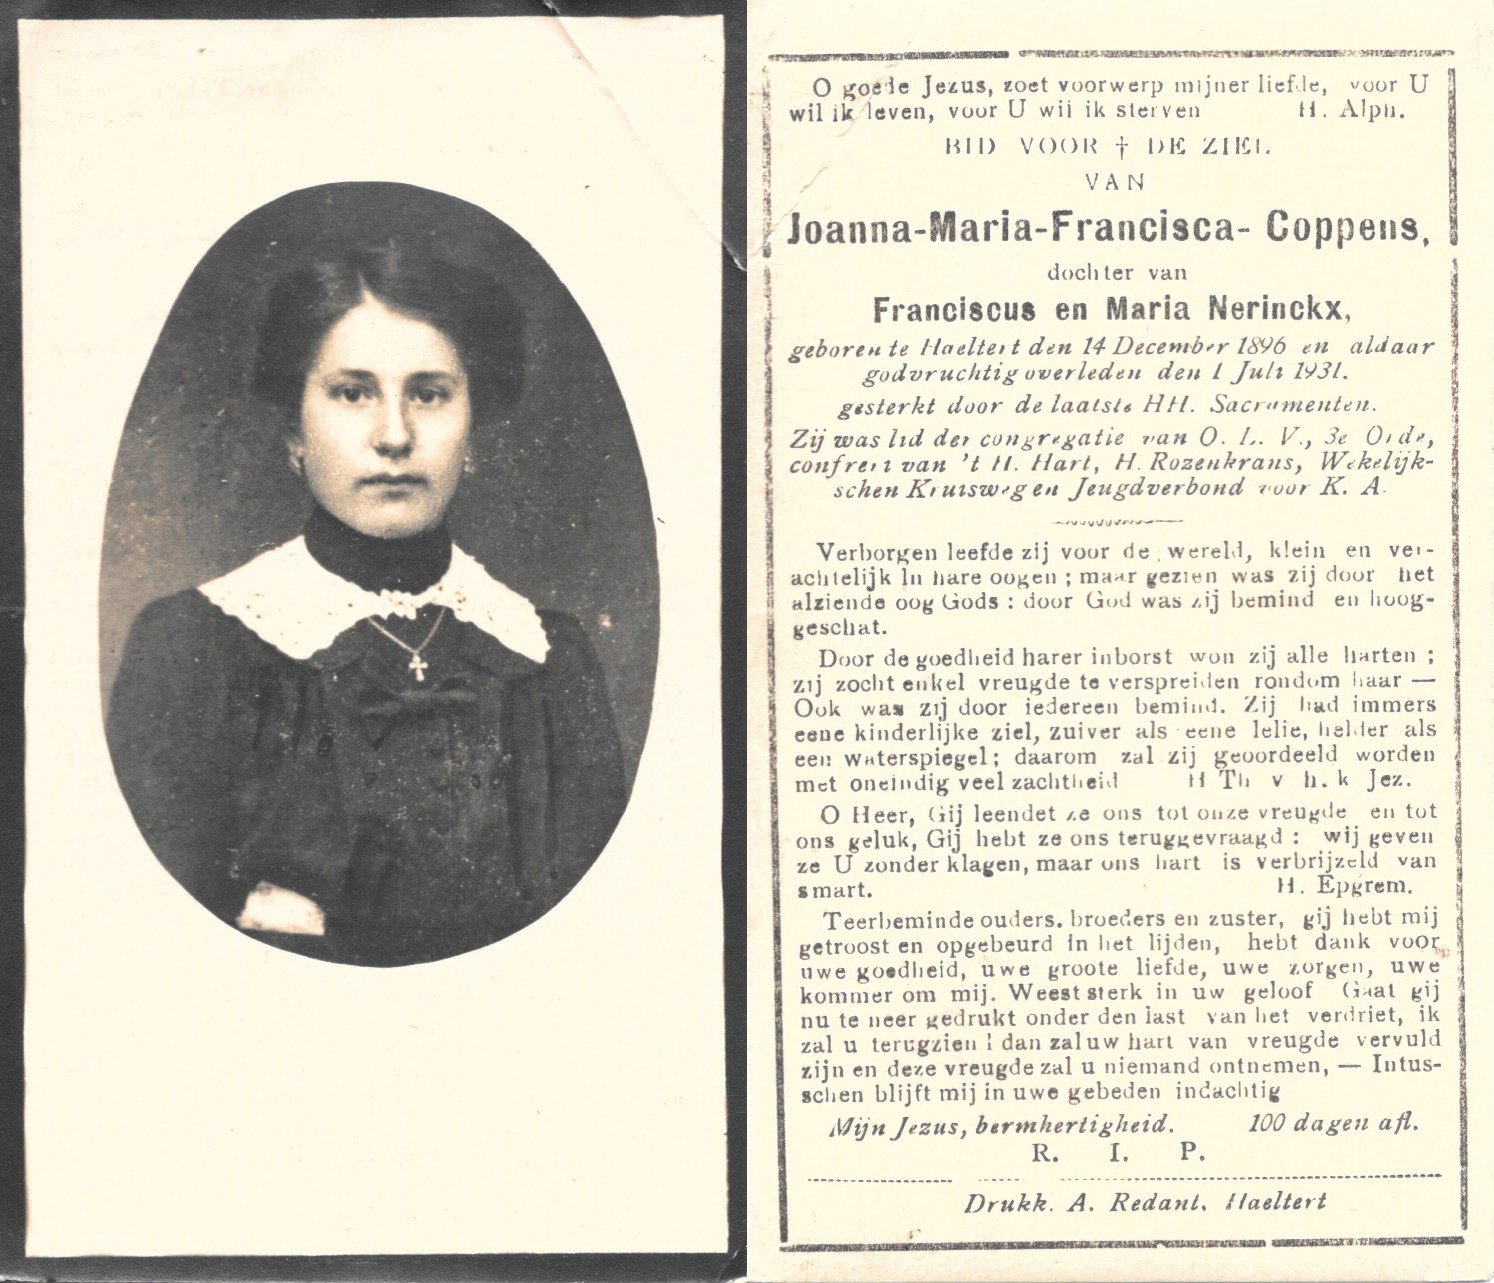 O goede Jezus, zoet voorwerp mijner liefde, voor U
wil ik leven, voor U wil ik sterven H. Alph.
BID VOOR † DE ZIEL
VAN
Joanna-Maria-Francisca- Coppens,
dochter van
Franciscus en Maria Nerinckx,
geboren te Haeltert den 14 December 1896 en aldaar
godvruchtig overleden den 1 Juli 1931.
gesterkt door de laatste HH. Sacramenten.
Zij was lid der congregatie van O. L. V., 3e Orde,
confreri van 't H. Hart, H. Rozenkrans, Wekelijk-
schen Kruisweg en Jeugdverbond voor K. A.
Verborgen leefde zij voor de wereld, klein en ver-
achtelijk in hare oogen ; maar gezien was zij door het
alziende oog Gods : door God was zij bemind en hoog-
geschat.
Door de goedheid harer inborst won zij alle harten ;
zij zocht enkel vreugde te verspreiden rondom haar —
Ook was zij door iedereen bemind. Zij had immers
eene kinderlijke ziel, zuiver als eene lelie, helder als
een waterspiegel; daarom zal zij geoordeeld worden
met oneindig veel zachtheid H Th v h. k Jez.
O Heer, Gij leendet ze ons tot onze vreugde en tot
ons geluk, Gij hebt ze ons teruggevraagd : wij geven
ze U zonder klagen, maar ons hart is verbrijzeld van
smart. H. Epgrem.
Teerbeminde ouders. broeders en zuster, gij hebt mij
getroost en opgebeurd in het lijden, hebt dank voor
uwe goedheid, uwe groote liefde, uwe zorgen, uwe
kommer om mij. Weest sterk in uw geloof Gaat gij
nu te neer gedrukt onder den last van het verdriet, ik
zal u terugzien ! dan zal uw hart van vreugde vervuld
zijn en deze vreugde zal u niemand ontnemen, — Intus-
schen blijft mij in uwe gebeden indachtig
Mijn Jezus, bermhertigheid. 100 dagen afl.
R. I. P.
Drukk. A. Redant. Haeltert